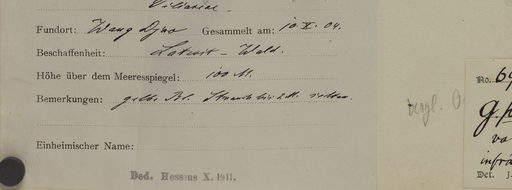 Fundort: Wang Djir Gesammelt am: 10.X.04.
Beschaffenheit: Laterit-Wald.
Höhe über dem Meeresspiegel: 100 M.
Bemerkungen: gelbe Bl. Strauch bis 2 M. selten.
Einheimischer Name:
Ded. Hosseus X. 1911.
vergl.
No. 69
Det. J.